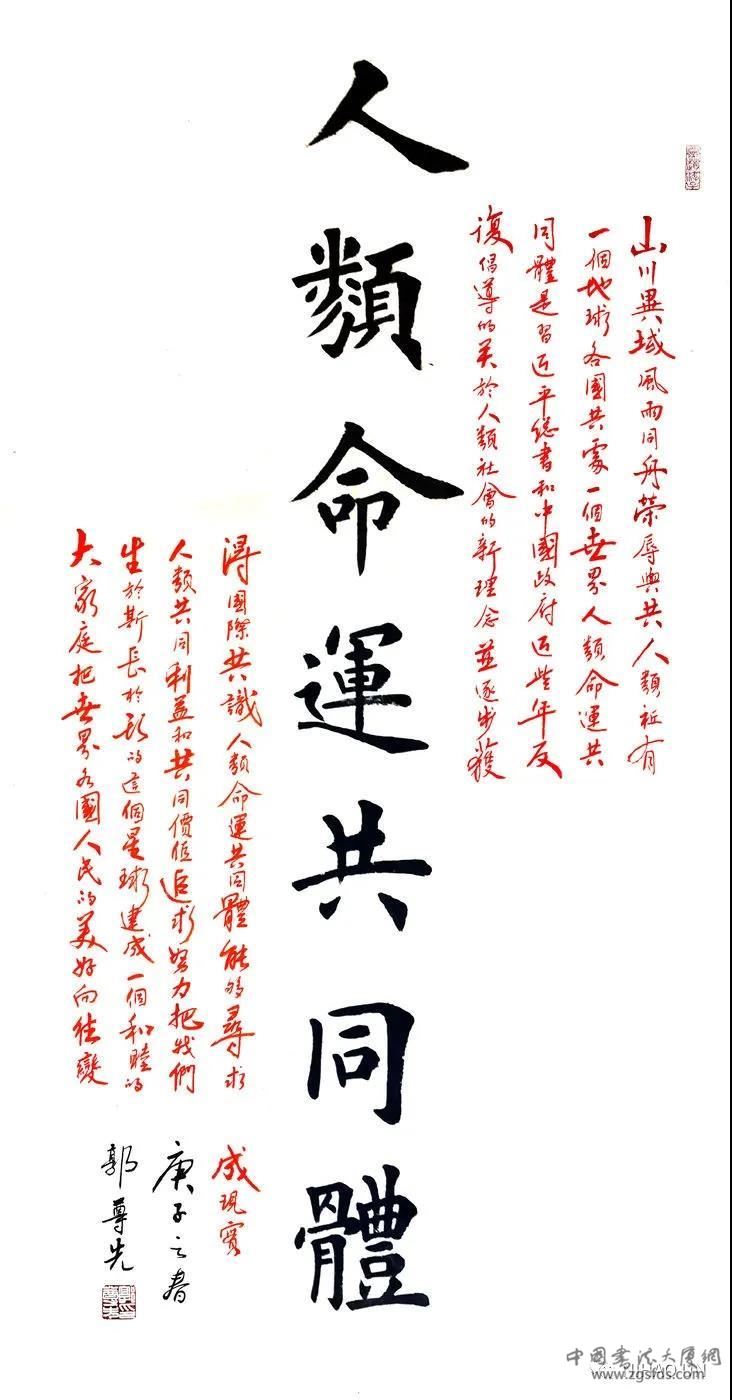 人類命運共同體
山川異域風雨同舟榮辱與共人類祇有
一個地球各國共處一個世界人類命運共
同體是習近平總書和中國政府近些年反
復倡導的关於人類社會的新理念並逐步獲
得國際共識人類命運共同體能够尋求
人類共同利益和共同價值追求努力把我們
生於斯長於斯的這個星球建成一個和睦的
大家庭把世界各國人民的美好向往變
成現實
庚子之春
郭尊先
中國書法大厦網
www.zgsfds.com